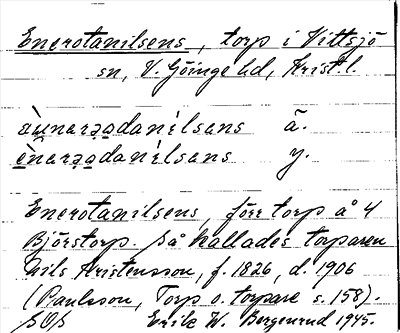 Enerotanilsens, torp i Vittsjö
sn, V. Göinge hd, Krist. l.
ä.
y.
Enerotanilsens, förr torp å 4
Björstorp. Så kallades torparen
Nils Kristensson, f. 1826, d. 1906
(Paulsson, Torp o. torpare s. 158).
SOS Erik W. Bergenrud 1945.